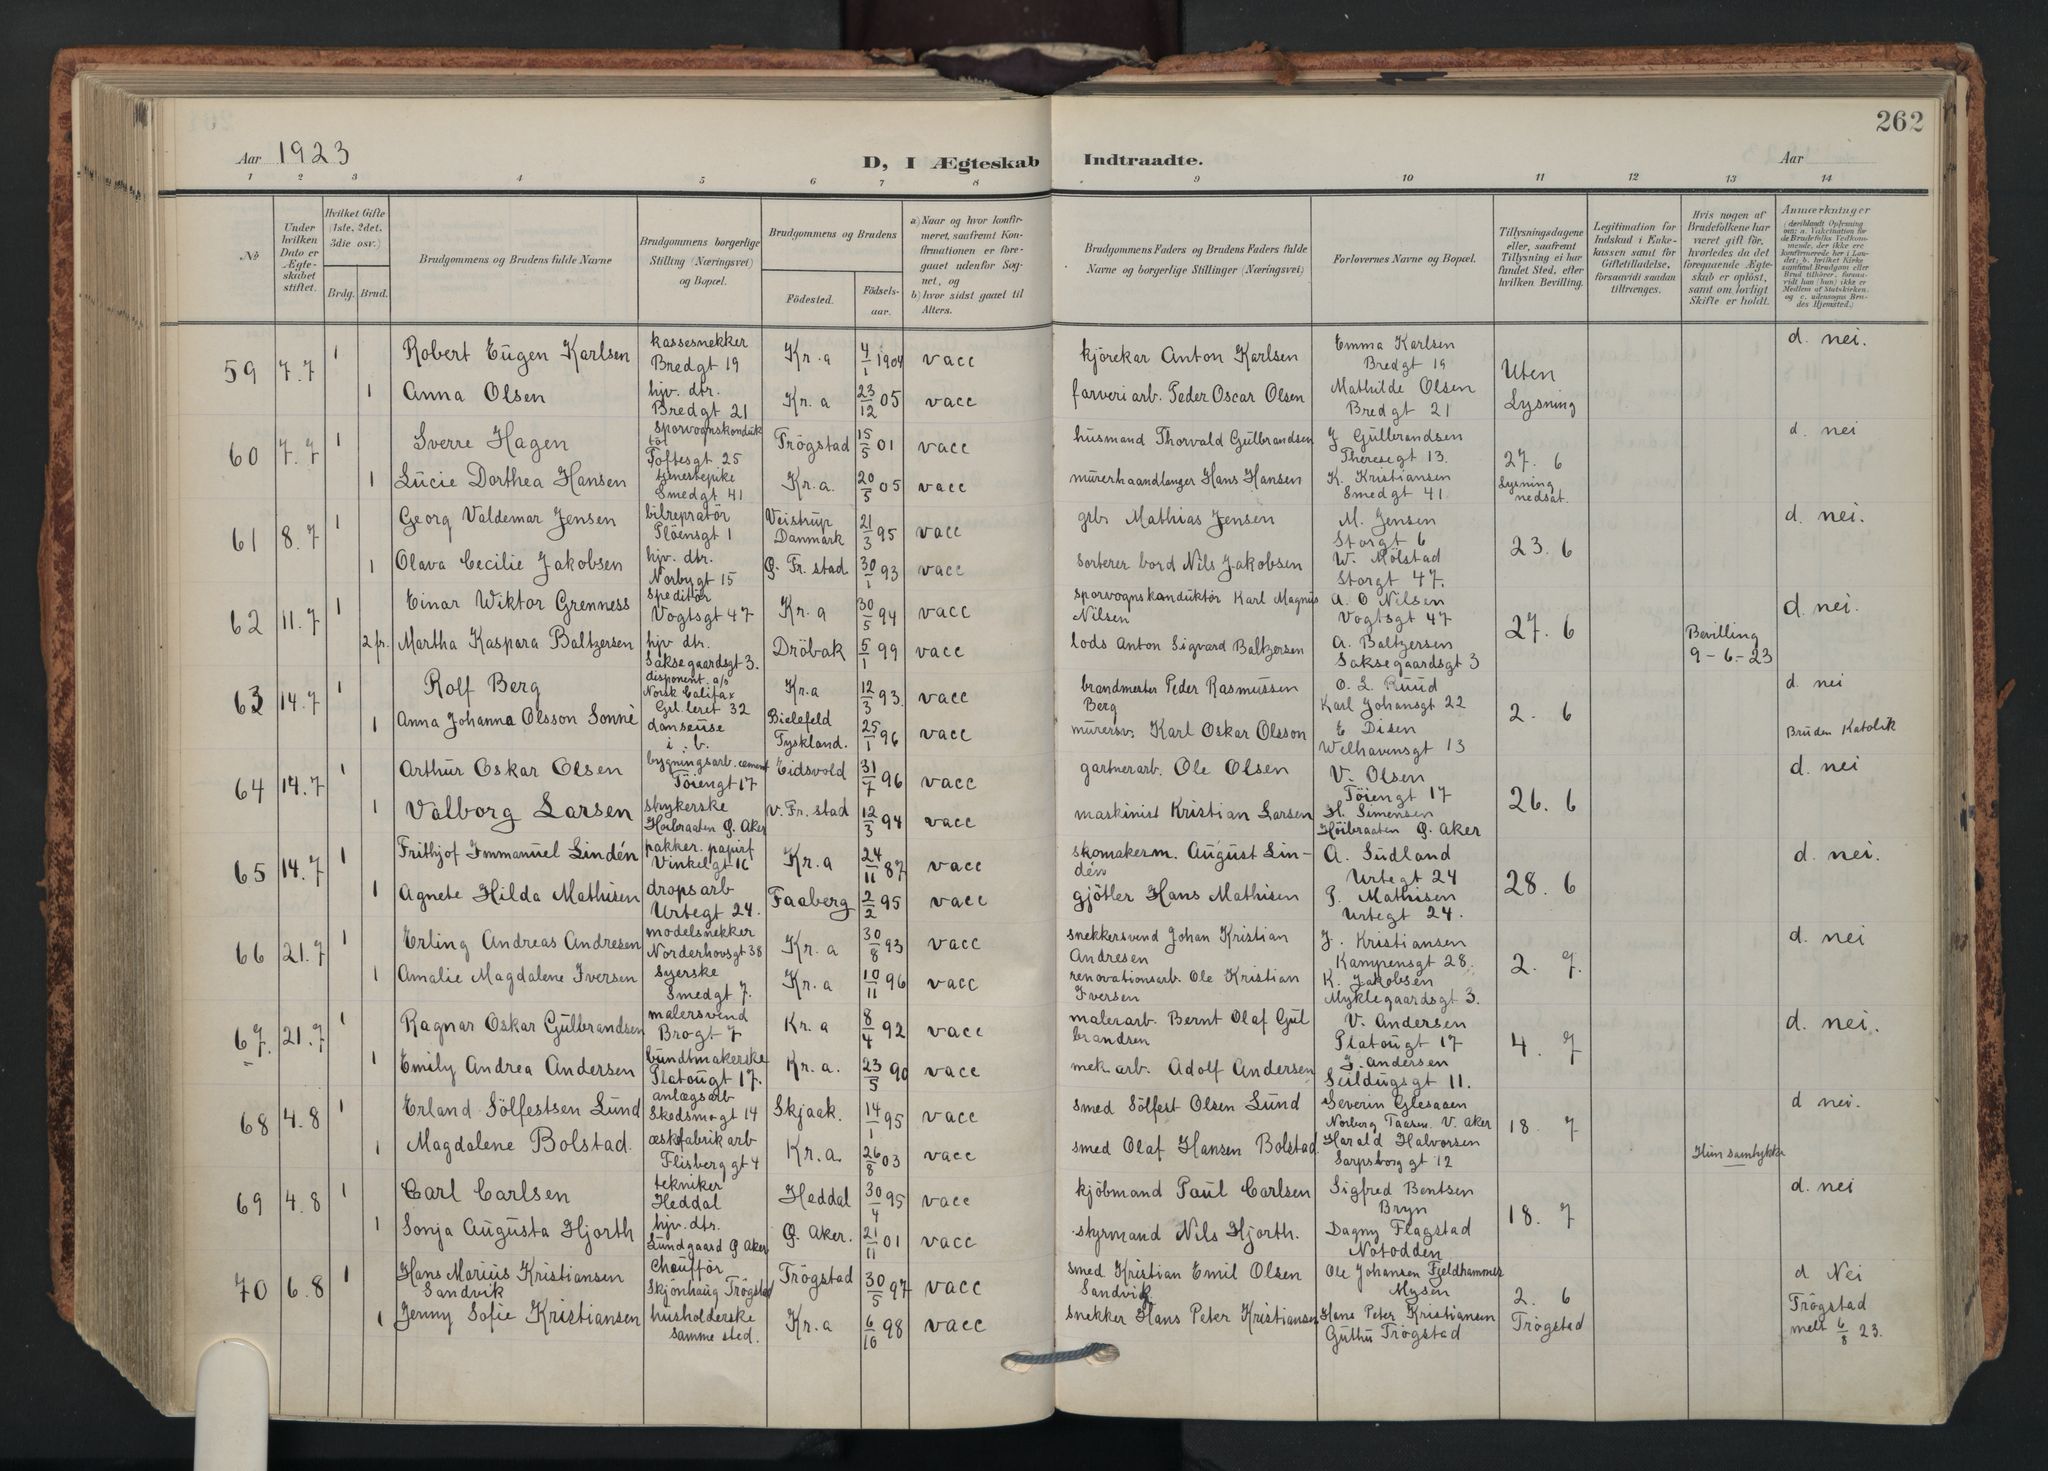 262
Aar 1923
D, I Ægteskab Indtraadte.
Aar
1 2 3 4 5 6 7 8 9 10 11 12 13 14
No
Under hvilken Dato er Ægteskabet stiftet.
Hvilket Gifte (1ste, 2det, 3die osv.)
Brdg. Brud.
Brudgommens og Brudens fulde Navne
Brudgommens borgerlige Stilling (Næringsvei) og Bopæl.
Brudgommens og Brudens
Fødested. Fødselsaar.
a) Naar og hvor konfirmeret, saafremt Konfirmationen er foregaaet udenfor Sognet, og b) hvor sidst gaaet til Alters.
Brudgommens Faders og Brudens Faders fulde Navne og borgerlige Stillinger (Næringsvei)
Forlovernes Navne og Bopæl.
Tillysningsdagene eller, saafremt Tillysning ei har fundet Sted, efter hvilken Bevilling.
Legitimation for Indskud i Enkekassen samt for Giftetilladelse, forsaavidt saadan tiltrænges.
Hvis nogen af Brudefolkene har været gift før, hvorledes da det foregaaende Ægteskab er opløst, samt om lovligt Skifte er holdt.
Anmærkninger
59 7.7 1 Robert Eugen Karlsen kassesnekker Bredgt 19 Kr.a 4/1 1904 vacc kjørekar Anton Karlsen Emma Karlsen Bredgt 19 Uten Lysning d. nei.
1 Anna Olsen hjv. dtr. Bredgt 21 Kr.a 23/12 05 vacc farveriarb. Peder Oscar Olsen Mathilde Olsen Bredgt 21
60 7.7 1 Sverre Hagen sporvognskonduktör Toftesgt 25 Trögstad 15/5 01 vacc husmand Thorvald Gulbrandsen J Gulbrandsen Theresegt 13. 27. 6 d. nei
1 Lucie Dorthea Hansen tjenestepike Smedgt 41 Kr.a. 20/5 05 vacc murerhaandlanger Hans Hansen K. Kristiansen Smedgt 41 Lysning nedsat.
61 8.7 1 Georg Valdemar Jensen bilrepratör Plöensgt 1 Veistrup Danmark 21/3 95 vacc grb. Mathias Jensen M. Jensen Storgt 6 23. 6 d. nei.
1 Olava Cecilie Jakobsen hjv. dtr. Norbygt 15 Ø. Fr. stad. 30/1 93 vacc sorterer bord Nils Jakobsen W. Mölstad Storgt 47.
62 11.7 1 Einar Wiktor Grenness speditör Vogtsgt 47 Kr.a 30/5 94 vacc sporvognskonduktör Karl Magnus Nilsen A. O Nilsen Vogtsgt 47 27. 6 d. nei.
2 fr. Martha Kaspara Baltzersen hjv dtr. Saksegaardsgt 3. Dröbak 5/1 99 vacc lods Anton Sigvard Baltzersen A. Baltzersen Saksegaardsgt 3 Bevilling 9-6-23
63 14.7 1 Rolf Berg disponent. a/s Norsk Califax Grl. leret 32 Kr.a 12/3 93. vacc brandmester Peder Rasmussen Berg O. L. Ruud Karl Johansgt 22 2. 6 d. nei
1 Anna Johanna Olsson Sonnè danseuse i. b. Bielefeld Tyskland. 25/1 96 vacc murersv. Karl Oskar Olsson E Disen Welhavensgt 13 Bruden Katolik
64 14.7 1 Arthur Oskar Olsen bygningsarb. cement Töiengt 17 Eidsvold 31/7 96 vacc gartnerarb. Ole Olsen V. Olsen Töiengt 17 26. 6 d. nei
1 Valborg Larsen strykerske Höibraaten Ø. Aker v. Fr. stad 12/3 94 vacc maskinist Kristian Larsen H. Simensen Höibraaten Ø. Aker
65 14.7 1 Frithjof Immanuel Lindén pakker. papirf Vinkelgt 16 Kr.a 24/11 87 vacc skomakerm. August Lindén A. Sudland Urtegt 24 28. 6 d. nei.
1 Agnete Hilda Mathisen dropsarb Urtegt 24. Faaberg 2/2 95 vacc gjötler Hans Mathisen P. Mathisen Urtegt 24.
66 21.7 1 Erling Andreas Andresen modelsnekker Norderhovsgt 38 Kr.a 30/8 93 vacc snekkersvend Johan Kristian Andresen J. Kristiansen Kampensgt 28. 2. 7. d. nei
1 Amalie Magdalene Iversen syerske Smedgt 7. Kr.a 10/11 96 vacc renovationsarb. Ole Kristian Iversen K. Jakobsen Myklegaardsgt 3.
67. 21.7 1 Ragnar Oskar Gulbrandsen malersvend Brogt 7 Kr.a 8/4 92 vacc malerarb. Bernt Olaf Gulbrandsen V. Andersen Platougt 17 4. 7 d. nei.
1 Emily Andrea Andersen bundtmakerske Platougt 17. Kr.a. 23/5 90 vacc mek arb. Adolf Andersen J. Andersen Seildugsgt 11.
68 4.8 1 Erland Sölfestsen Lund anlægsarb Skedsmogt 14 Skjaak. 14/1 95 vacc smed Sölfest Olsen Lund Severin Glesaaen Norberg Taasen. V. Aker 18. 7 d nei.
1 Magdalene Bolstad. æskefabrikarb Flisberggt 4 Kr.a. 26/8 03 vacc smed Olaf Hansen Bolstad Harald Halvorsen Sarpsborggt 12
69 4.8 1 Carl Carlsen tekniker Heddal Heddal 30/4 95 vacc kjöbmand Paul Carlsen Sigfred Bentsen Bryn 18. 7 d. nei
1 Sonja Augusta Hjorth hjv. dtr. Lundgaard Ø Aker Ø. Aker. 21/11 01 vacc styrmand Nils Hjorth. Dagny Flagstad Notodden
70 6.8 1 Hans Marius Kristiansen Sandvik Chaufför Skjönhaug Trögstad Trögstad 30/5 97 vacc smed Kristian Emil Olsen Sandvik Ole Johansen Fjeldhammer Mysen 2. 6 Trögstad d. Nei
1 Jenny Sofie Kristiansen husholderske samme sted. Kr.a 6/10 98 vacc snekker Hans Peter Kristiansen Hans Peter Kristiansen Guthu Trögstad Trögstad melt 6/8 23.